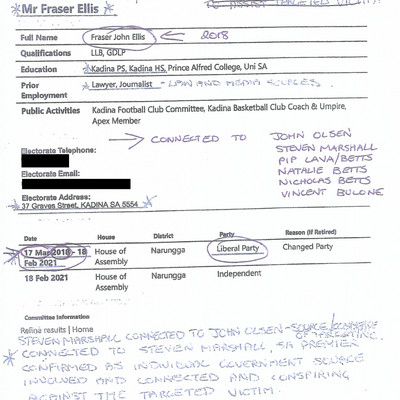 TO ASSIST TARGETED VICTIM
*Mr Fraser Ellis
Full Name Fraser John Ellis 2018
Qualifications LLB, GDLP
Education Kadina PS, Kadina HS, Prince Alfred College, Uni SA
Prior Employment Lawyer, Journalist - LAW AND MEDIA SOURCES
Public Activities Kadina Football Club Committee, Kadina Basketball Club Coach & Umpire,
Apex Member
CONNECTED TO JOHN OLSEN
STEVEN MARSHALL
PIP LAVA/BETTS
NATALIE BETTS
NICHOLAS BETTS
VINCENT BULONE
Electorate Telephone:
Electorate Email:
Electorate Address:
37 Graves Street, KADINA SA 5554
Date House District Party Reason (If Retired)
17 Mar 2018 - 18 House of Narungga Liberal Party Changed Party
Feb 2021 Assembly
18 Feb 2021 House of Narungga Independent
Assembly
Committee Information
Refine results | Home
STEVEN MARSHALL CONNECTED TO JOHN OLSEN - SOURCE
OF TARGETING.
CONNECTED TO STEVEN MARSHALL, SA PREMIER
CONFIRMED AS INDIVIDUAL GOVERNMENT SOURCE
INVOLVED AND CONNECTED AND CONSPIRING
AGAINST THE TARGETED VICTIM.